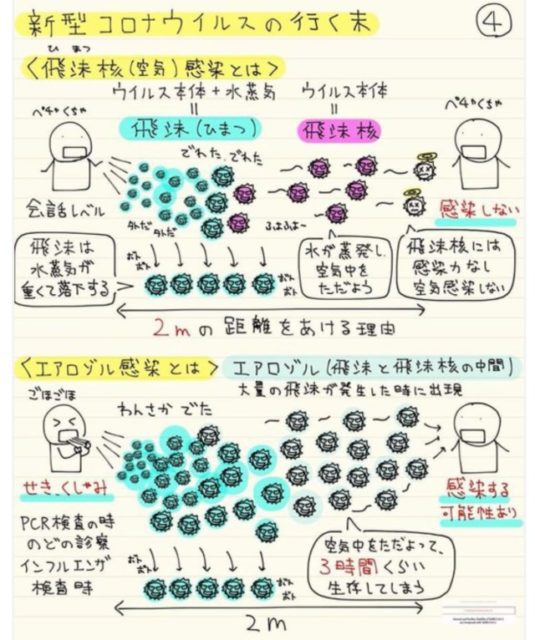 新型コロナウイルスの行く末
④
ひまつ
<飛沫核(空気)感染とは>
ウイルス本体+水蒸気
ウイルス本体
ペチャくちゃ
ペチャくちゃ
=
=
飛沫(ひまつ)
飛沫核
でれた、でれた
会話レベル
外だ
外だ
ふよふよ~
感染しない
飛沫は
水蒸気が
重くて落下する
ボト
ボト
ボト
ボト
水が蒸発し、
空気中を
ただよう
飛沫核には
感染力なし
空気感染しない
2mの距離をあける理由
<エアロゾル感染とは>
エアロゾル(飛沫と飛沫核の中間)
大量の飛沫が発生した時に出現
ごほごほ
わんさか でた
せき、くしゃみ
感染する
可能性あり
PCR検査の時
のどの診察
インフルエンザ
検査時
空気中をただよって、
3時間くらい
生存してしまう
ボト
ボト
ボト
ボト
2m